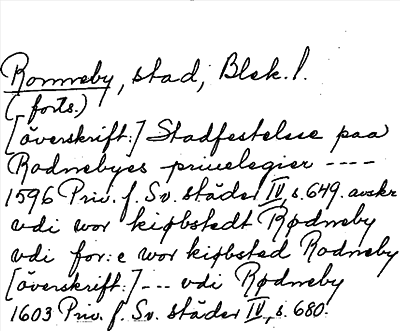 Ronneby, stad, Blek. l.
(forts.)
[överskrift:] Stadfestelsse paa
Rodnebyes priuelegier ----
1596 Priv. f. Sv. städer IV, s. 649. avskr
vdi wor kiøbstedt Rødneby
vdi for:e wor kiøbsted Rodneby
[överskrift:] --- vdi Rødneby
1603 Priv. f. Sv. städer IV, s. 680.